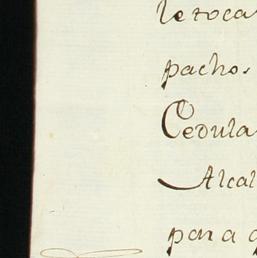 le toca
pacho.
Cedula
Alcal
para q